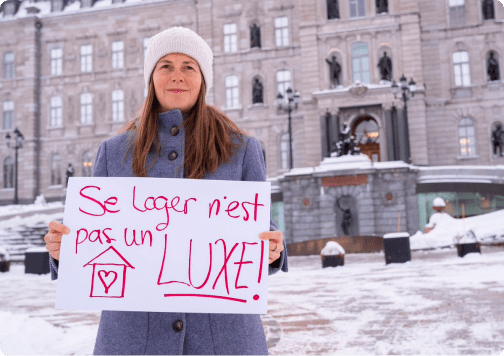 Se loger n'est
pas un
LUXE!